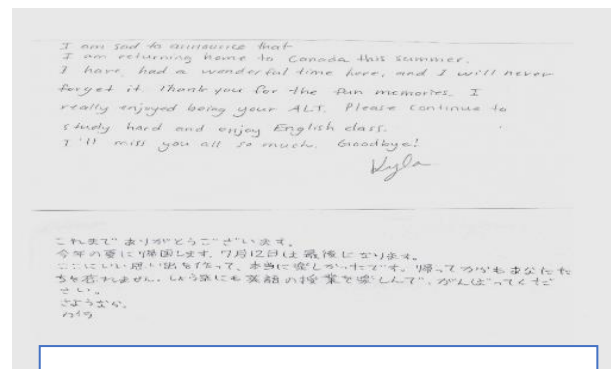 I am sad to announce that
I am returning home to Canada this summer.
I have had a wonderful time here, and I will never
forget it. Thank you for the fun memories. I
really enjoyed being your ALT. Please continue to
study hard and enjoy English class.
I'll miss you all so much. Goodbye!
Kyla
これまでありがとうございます。
今年の夏に帰国します。7月12日は最後になります。
ここにいい思い出を作って、本当に楽しかったです。帰ってからもあなたた
ちを忘れません。しょう来にも英語の授業を楽しんで、がんばってくだ
さい。
さようなら。
カイラ